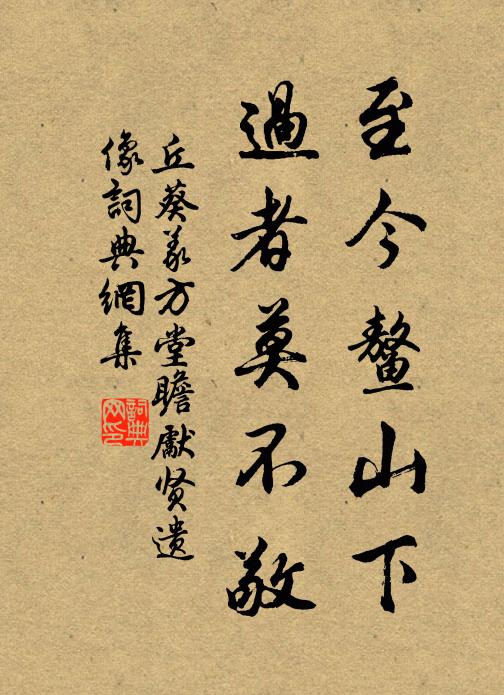 至今鳌山下
過者莫不敬
丘葵义方堂瞻獻贤遗
像詞典網集
詞典
网印